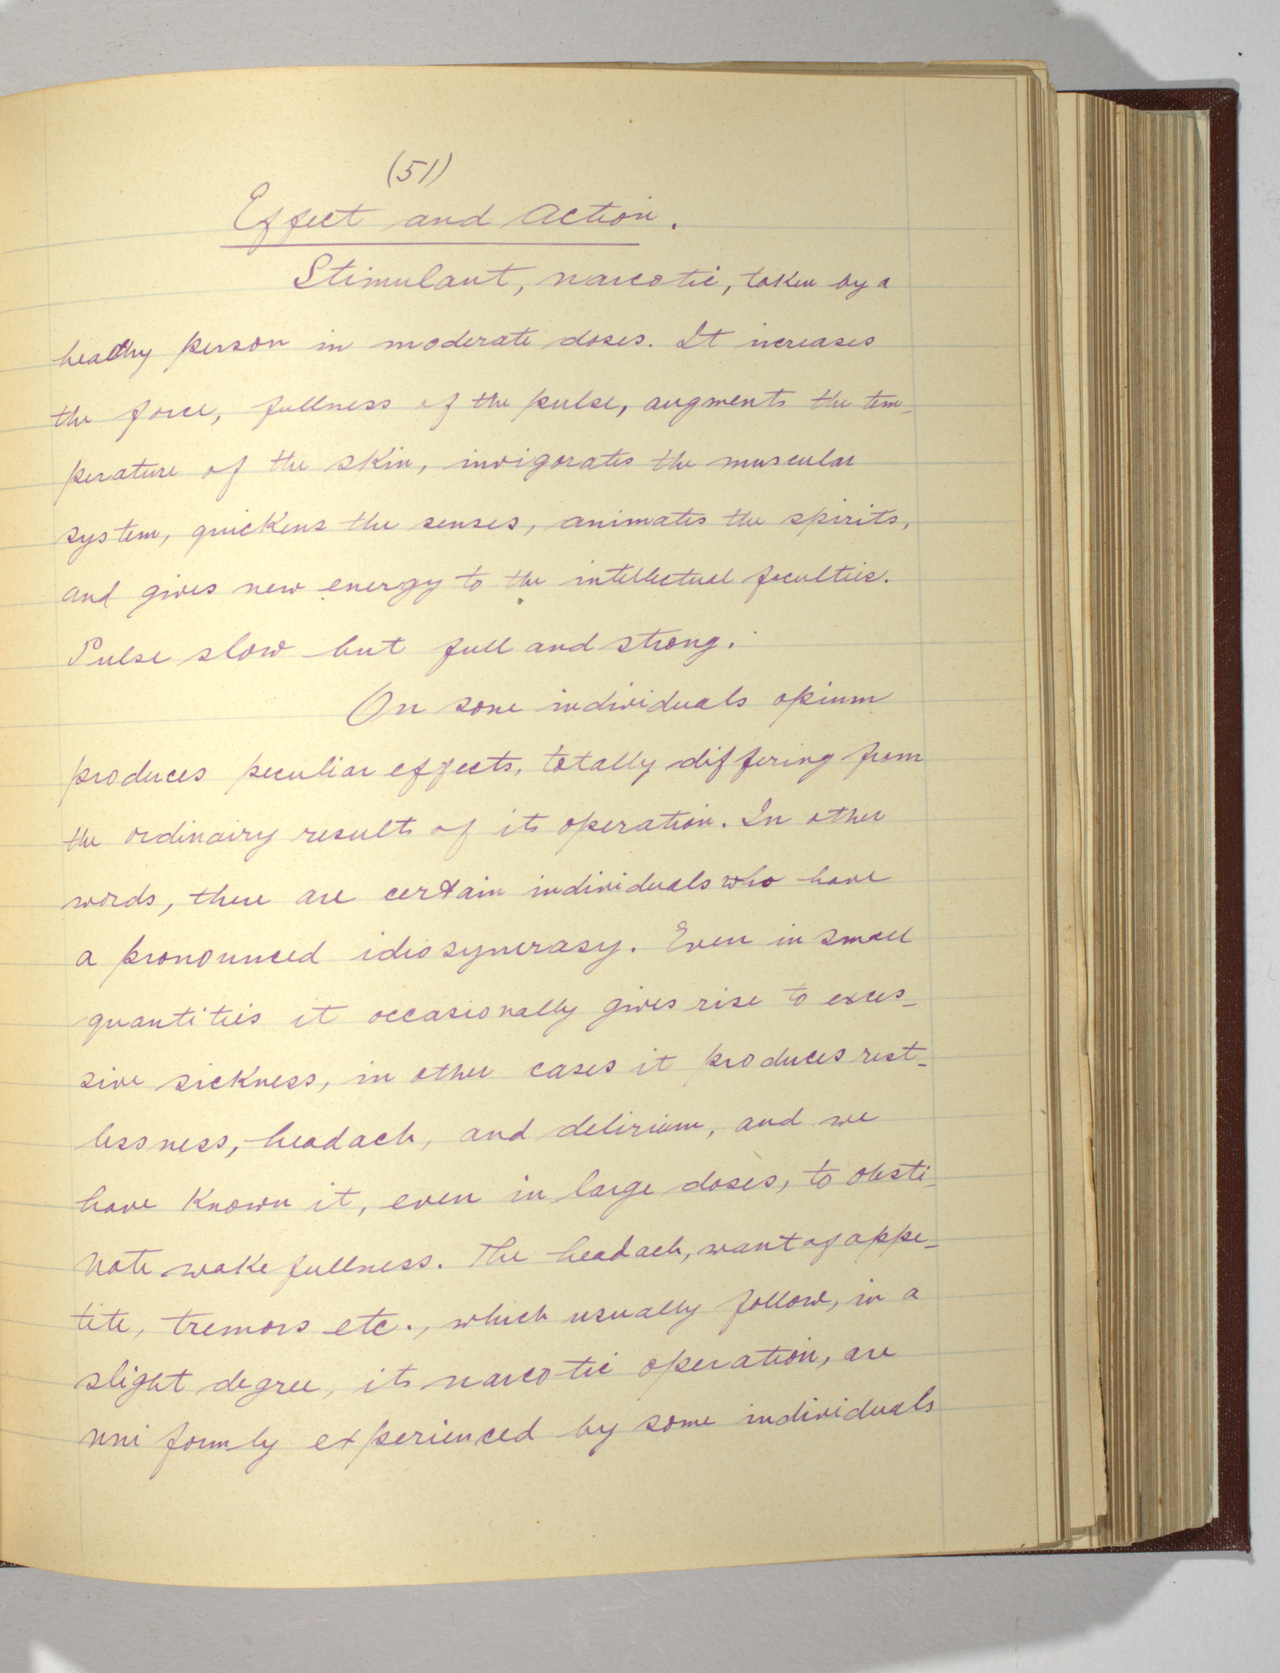 (51)
Effect and Action.
Stimulant, narcotic, taken by a
healthy person in moderate doses. It increases
the force, fullness of the pulse, augments the tem-
perature of the skin, invigorates the muscular
system, quickens the senses, animates the spirits,
and gives new energy to the intellectual faculties.
Pulse slow but full and strong.
On some individuals opium
produces peculiar effects, totally differing from
the ordinairy results of its operation. In other
words, there are certain individuals who have
a pronounced idiosyncrasy. Even in small
quantities it occasionally gives rise to exces-
sive sickness, in other cases it produces rest-
lessness, headach, and delirium, and we
have known it, even in large doses, to obsti-
nate wakefullness. The headach, want of appe-
tite, tremors etc., which usually follow, in a
slight degree, its narcotic operation, are
uniformly experienced by some individuals